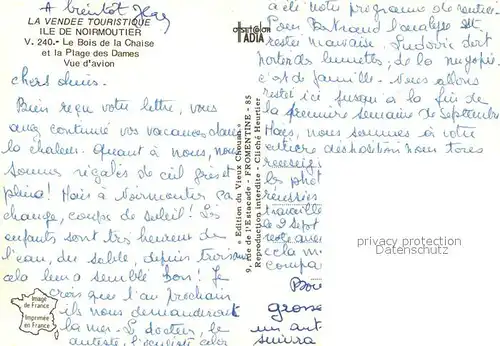 A bientôt
LA VENDEE TOURISTIQUE
ILE DE NOIRMOUTIER
V. 240.- Le Bois de la Chaise
et la Plage des Dames
Vue d'avion
chers amis.
Bien reçu votre lettre, vous
avez continué vos vacances dans
la chaleur. Quant à nous, nous
sommes régalés de ciel gris et
pluie! Mais à Noirmoutier ça
change, coups de soleil! Les
enfants sont très heureux de
l'eau, du sable, depuis trois ans
cela leur a semblé bon! Je
crois que l'an prochain
ils nous demanderont
la mer. Le docteur, le
dentiste, l'oculiste
Image
de France
Imprimée
en France
ARTAUD
« Edition du Vieux Chouan »
9, rue de l'Estacade - FROMENTINE - 85
Reproduction interdite - Cliché Heurtier
a été notre programme de
Pour Bertrand l'analyse est
restée mauvaise. Ludovic doit
porter des lunettes, de la myopie
c'est de famille. Nous allons
rester ici jusqu'à la fin de
la première semaine de Septembre
Mais, nous sommes à votre
entière disposition nous
les phot
réussies
travaille
9 sept
cela m
compa
grosse
un ant
suivra
privacy protection
Datenschutz